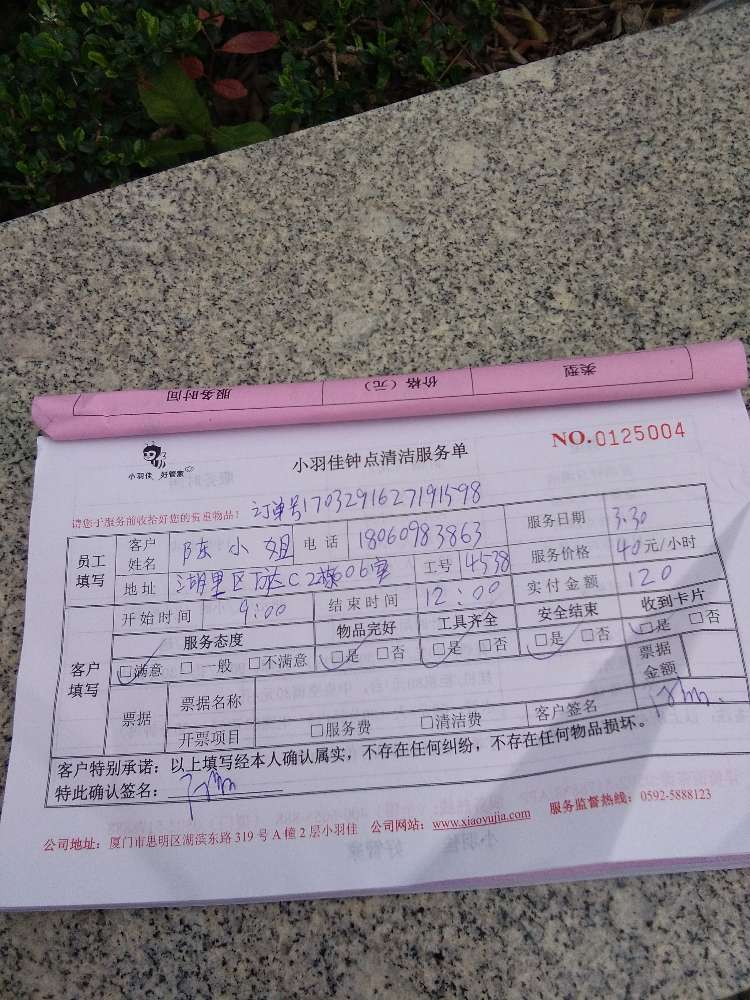 服务时间 价格（元） 类型
小羽佳 好管家
小羽佳钟点清洁服务单
NO.0125004
请您于服务前收拾好您的贵重物品！ 订单号1703291627191598
员工填写 客户姓名 陈小姐 电话 18060983863 服务日期 3.30
地址 湖里区万达C2栋606室 工号 4538 服务价格 40元/小时
开始时间 9:00 结束时间 12:00 实付金额 120
客户填写 服务态度 物品完好 工具齐全 安全结束 收到卡片
□满意 □一般 □不满意 □是 □否 □是 □否 □是 □否 □是 □否
票据 票据名称 票据金额
开票项目 □服务费 □清洁费 客户签名
客户特别承诺：以上填写经本人确认属实，不存在任何纠纷，不存在任何物品损坏。
特此确认签名：
公司地址：厦门市思明区湖滨东路319号A幢2层小羽佳 公司网站：www.xiaoyujia.com 服务监督热线：0592-5888123